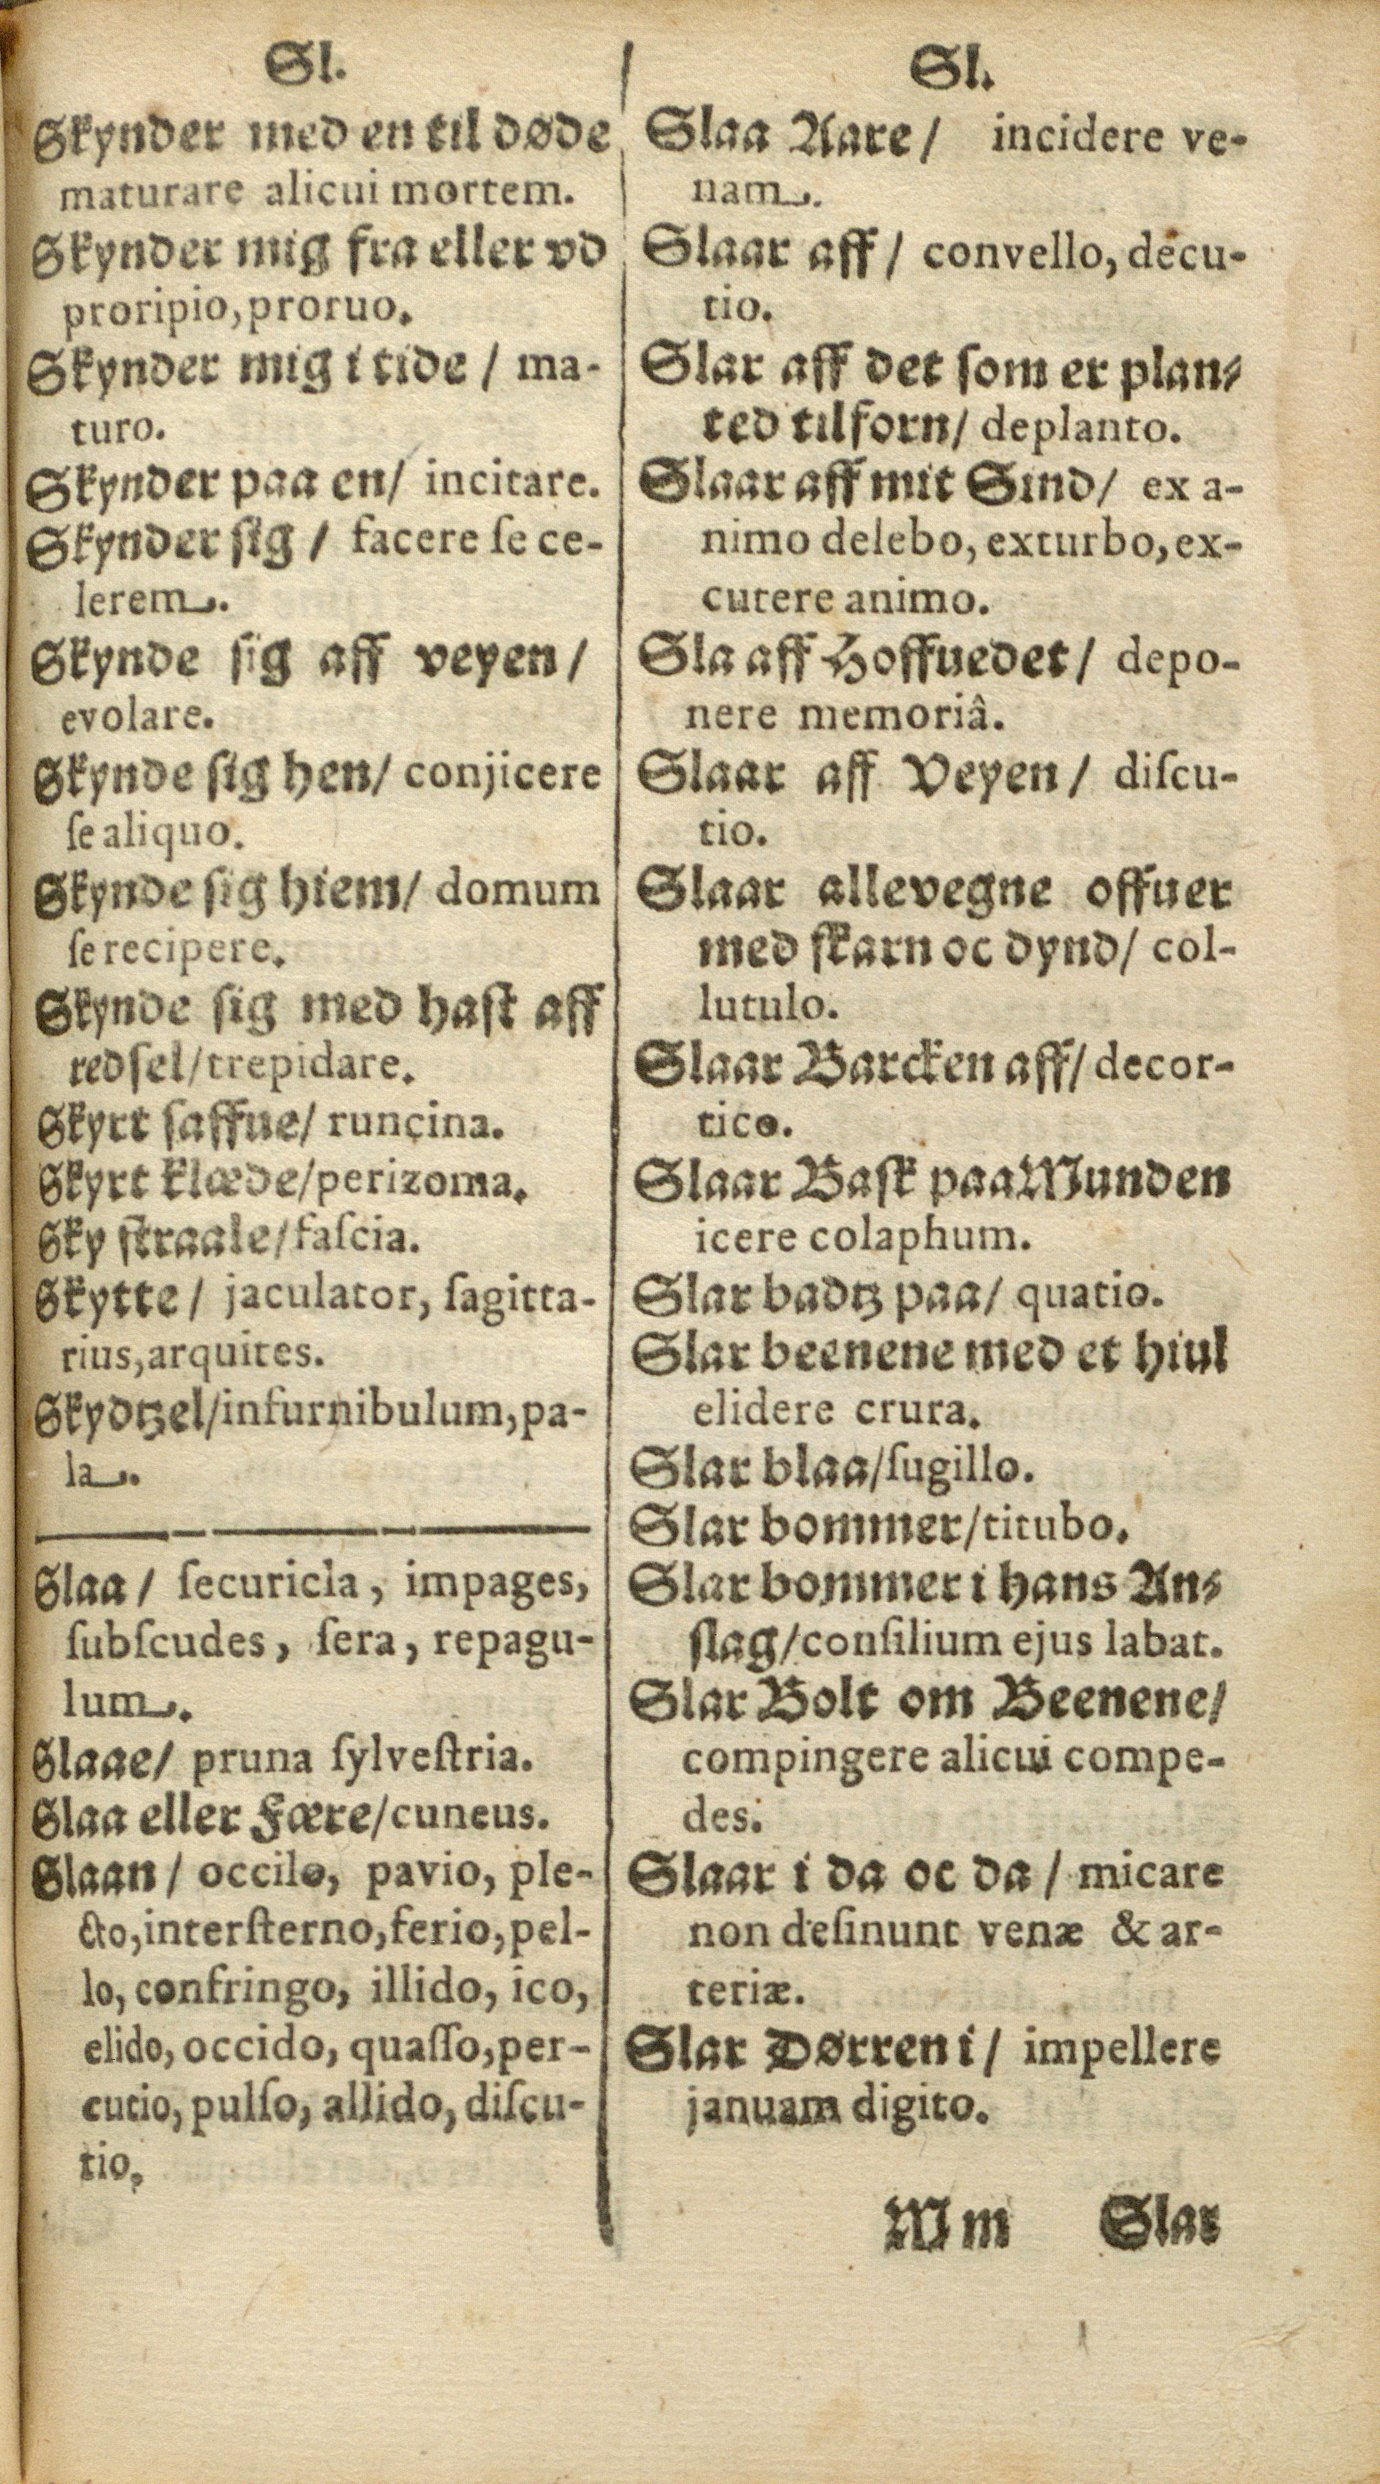 Sl.
Skynder med en til døde
maturare alicui mortem.
Skynder mig fra eller vd
proripio, proruo.
Skynder mig i tide / ma-
turo.
Skynder paa en/ incitare.
Skynder sig / facere ſe ce-
lerem.
Skynde sig aff veyen /
evolare.
Skynde sig hen/ conjicere
ſe aliquo.
Skynde sig hiem/ domum
ſe recipere.
Skynde sig med haſt aff
redſel/trepidare.
Skyrt ſaffue/ runcina.
Skyrt klæde/perizoma.
Sky ſtraale/faſcia.
Skytte / jaculator, ſagitta-
rius, arquites.
Skydtzel/infurnibulum, pa-
la.
Slaa / ſecuricla, impages,
ſubſcudes, ſera, repagu-
lum.
Slaae/ pruna ſylveſtria.
Slaa eller Fære/cuneus.
Slaan / occilo, pavio, ple-
cto, interſterno, ferio, pel-
lo, confringo, illido, ico,
elido, occido, quaſſo, per-
cutio, pulſo, allido, diſcu-
tio.
Sl.
Slaa Aare / incidere ve-
nam.
Slaar aff / convello, decu-
tio.
Slar aff det ſom er plan-
ted tilforn/ deplanto.
Slaar aff mit Sind/ ex a-
nimo delebo, exturbo, ex-
cutere animo.
Sla aff Hoffuedet/ depo-
nere memoriâ.
Slaar aff Veyen / diſcu-
tio.
Slaar allevegne offuer
med ſkarn oc dynd/ col-
lutulo.
Slaar Barcken aff/ decor-
tico.
Slaar Baſk paa Munden
icere colaphum.
Slar badtz paa/ quatio.
Slar beenene med et hiul
elidere crura.
Slar blaa/ſugillo.
Slar bommer/titubo.
Slar bommer i hans An-
ſlag/conſilium ejus labat.
Slar Bolt om Beenene/
compingere alicui compe-
des.
Slaar i da oc da / micare
non deſinunt venæ & ar-
teriæ.
Slar Dørren i / impellere
januam digito.
Mm Slar